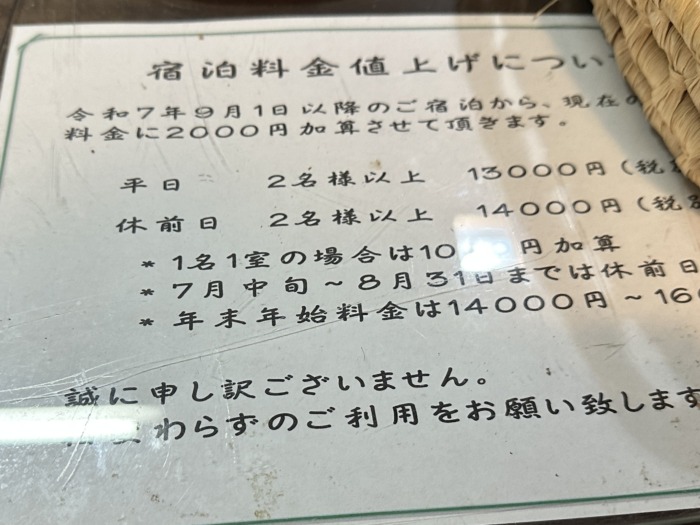 宿泊料金値上げについ
令和7年9月1日以降のご宿泊から、現在の
料金に2000円加算させて頂きます。
平日 2名様以上 13000円(税
休前日 2名様以上 14000円(税
*1名1室の場合は10 円加算
*7月中旬~8月31日までは休前日
*年末年始料金は14000円~16
誠に申し訳ございません。
わらずのご利用をお願い致します